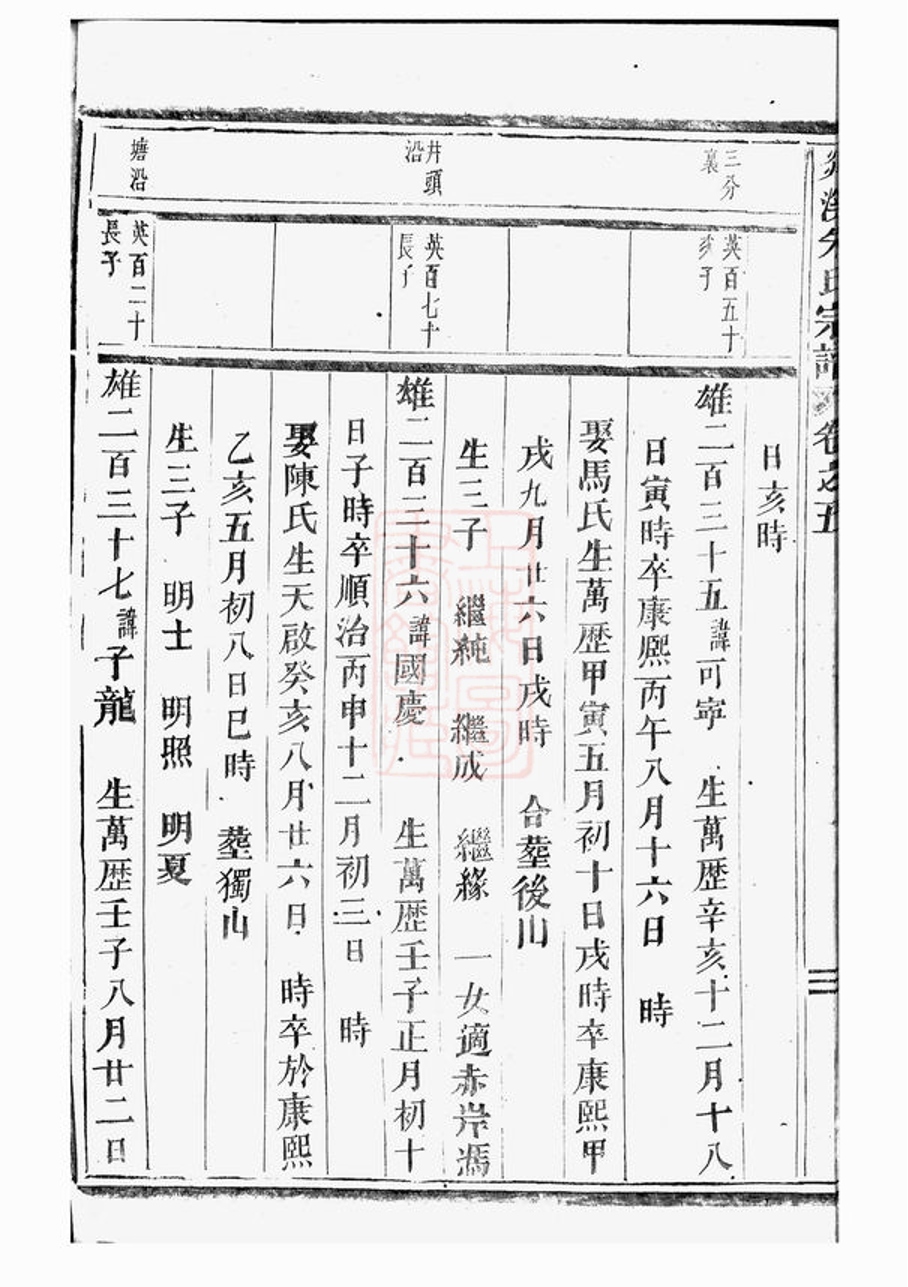 朱氏宗譜 卷之五
日亥時
三分
裏
英百五十
子
雄二百三十五諱可寧 生萬歷辛亥十二月十八
日寅時卒康熙丙午八月十六日 時
娶馬氏生萬歷甲寅五月初十日戌時卒康熙甲
戌九月廿六日戌時 合塟後山
生三子 繼純 繼成 繼緣 一女適赤岸馮
井頭
沿
英百七十
長子
雄二百三十六諱國慶 生萬歷壬子正月初十
日子時卒順治丙申十二月初三日 時
娶陳氏生天啟癸亥八月廿六日 時卒於康熙
乙亥五月初八日巳時 塟獨山
生三子 明士 明照 明夏
塘沿
英百二十
長子
雄二百三十七諱子龍 生萬歷壬子八月廿二日